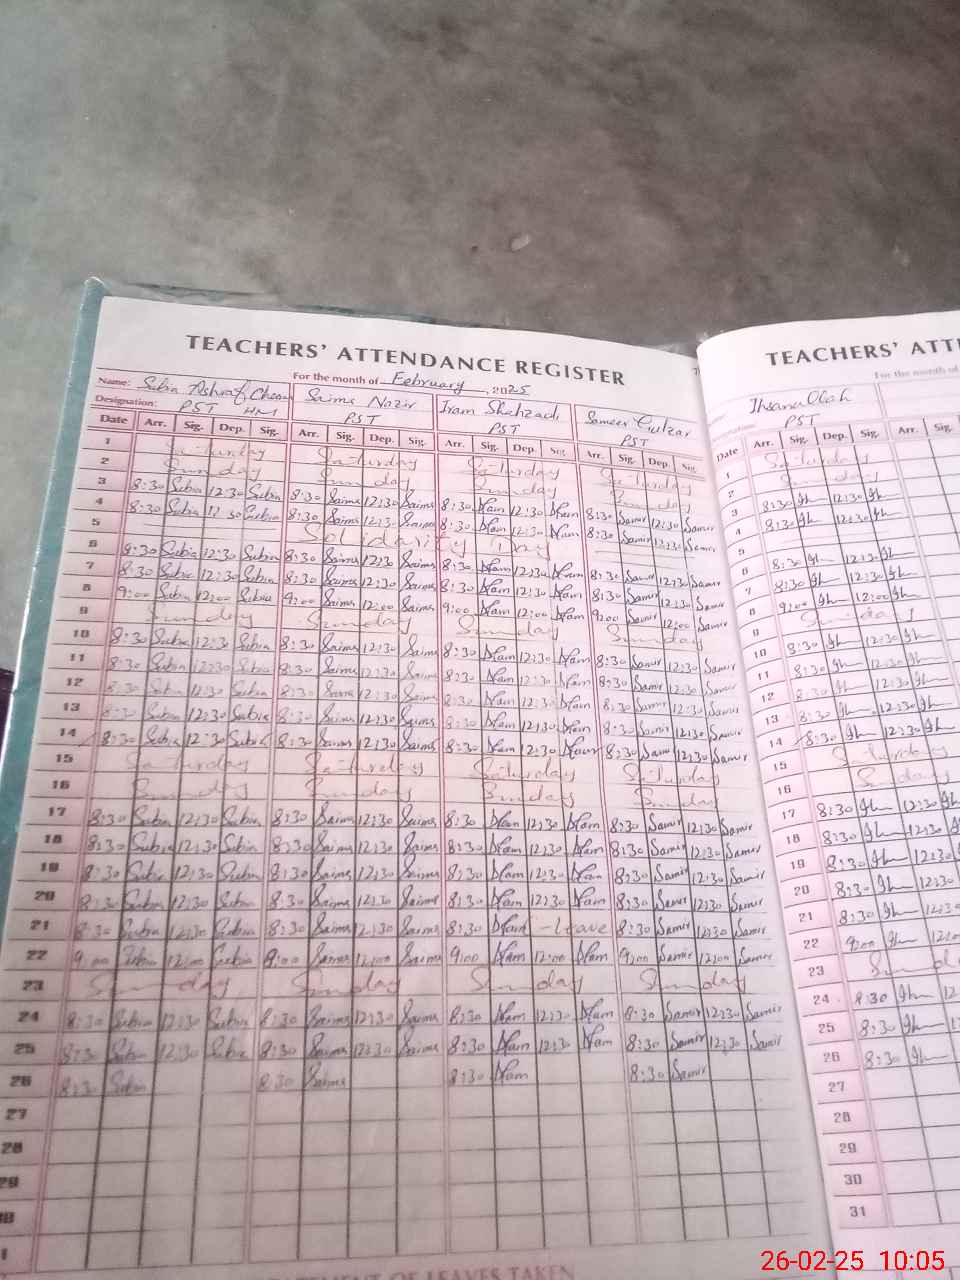 TEACHERS' ATTENDANCE REGISTER
Name: Subia Ashraf For the month of February, 2025
Saims Nazir Iram Shehzadi Sameer Gulzar
Designation: PST HM PST PST PST
Date Arr. Sig. Dep. Sig. Arr. Sig. Dep. Sig. Arr. Sig. Dep. Sig. Arr. Sig. Dep. Sig.
1 Saturday Saturday Saturday Saturday
2 Sunday Sunday Sunday Sunday
3 8:30 Subia 12:30 Subia 8:30 Saims 12:30 Saims 8:30 12:30 8:30 Samir 12:30 Samir
4 8:30 Subia 12:30 Subia 8:30 Saims 12:30 Saims 8:30 12:30 8:30 Samir 12:30 Samir
5 Solidarity Day
6 8:30 Subia 12:30 Subia 8:30 Saims 12:30 Saims 8:30 12:30 8:30 Samir 12:30 Samir
7 8:30 Subia 12:30 Subia 8:30 Saims 12:30 Saims 8:30 12:30 8:30 Samir 12:30 Samir
8 9:00 Subia 12:00 Subia 9:00 Saims 12:00 Saims 9:00 12:00 9:00 Samir 12:00 Samir
9 Sunday Sunday Sunday Sunday
10 8:30 Subia 12:30 Subia 8:30 Saims 12:30 Saims 8:30 12:30 8:30 Samir 12:30 Samir
11 8:30 Subia 12:30 Subia 8:30 Saims 12:30 Saims 8:30 12:30 8:30 Samir 12:30 Samir
12 8:30 Subia 12:30 Subia 8:30 Saims 12:30 Saims 8:30 12:30 8:30 Samir 12:30 Samir
13 8:30 Subia 12:30 Subia 8:30 Saims 12:30 Saims 8:30 12:30 8:30 Samir 12:30 Samir
14 8:30 Subia 12:30 Subia 8:30 Saims 12:30 Saims 8:30 12:30 8:30 Samir 12:30 Samir
15 Saturday Saturday Saturday Saturday
16 Sunday Sunday Sunday Sunday
17 8:30 Subia 12:30 Subia 8:30 Saims 12:30 Saims 8:30 12:30 8:30 Samir 12:30 Samir
18 8:30 Subia 12:30 Subia 8:30 Saims 12:30 Saims 8:30 12:30 8:30 Samir 12:30 Samir
19 8:30 Subia 12:30 Subia 8:30 Saims 12:30 Saims 8:30 12:30 8:30 Samir 12:30 Samir
20 8:30 Subia 12:30 Subia 8:30 Saims 12:30 Saims 8:30 12:30 8:30 Samir 12:30 Samir
21 8:30 Subia 12:30 Subia 8:30 Saims 12:30 Saims 8:30 -leave 8:30 Samir 12:30 Samir
22 9:00 Subia 12:00 Subia 9:00 Saims 12:00 Saims 9:00 12:00 9:00 Samir 12:00 Samir
23 Sunday Sunday Sunday Sunday
24 8:30 Subia 12:30 Subia 8:30 Saims 12:30 Saims 8:30 12:30 8:30 Samir 12:30 Samir
25 8:30 Subia 12:30 Subia 8:30 Saims 12:30 Saims 8:30 12:30 8:30 Samir 12:30 Samir
26 8:30 Subia 8:30 Saims 8:30 8:30 Samir
27
28
29
TEACHERS' ATT
For the month of
Ihsanullah
PST
Date Arr. Sig. Dep. Sig. Arr. Sig.
1 Saturday
2 Sunday
3 8:30 12:30
4 8:30 12:30
5
6 8:30 12:30
7 8:30 12:30
8 9:00 12:00
9 Sunday
10 8:30 12:30
11 8:30 12:30
12 8:30 12:30
13 8:30 12:30
14 8:30 12:30
15 Saturday
16 Sunday
17 8:30 12:30
18 8:30 12:30
19 8:30 12:30
20 8:30 12:30
21 8:30 12:30
22 9:00
23
24 8:30
25 8:30
26 8:30
27
28
29
30
31
OF LEAVES TAKEN
26-02-25 10:05